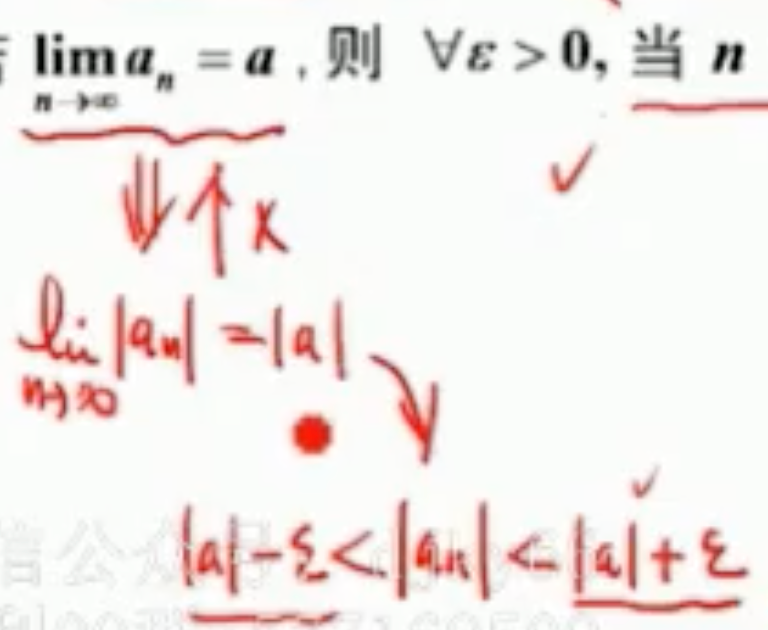 lim aₙ = a , 则 ∀ε > 0, 当 n
n→∞
✓
⇓ ↑ x
lim |aₙ| = |a|
n→∞
✓
|a| - ε < |aₙ| < |a| + ε
信公众号